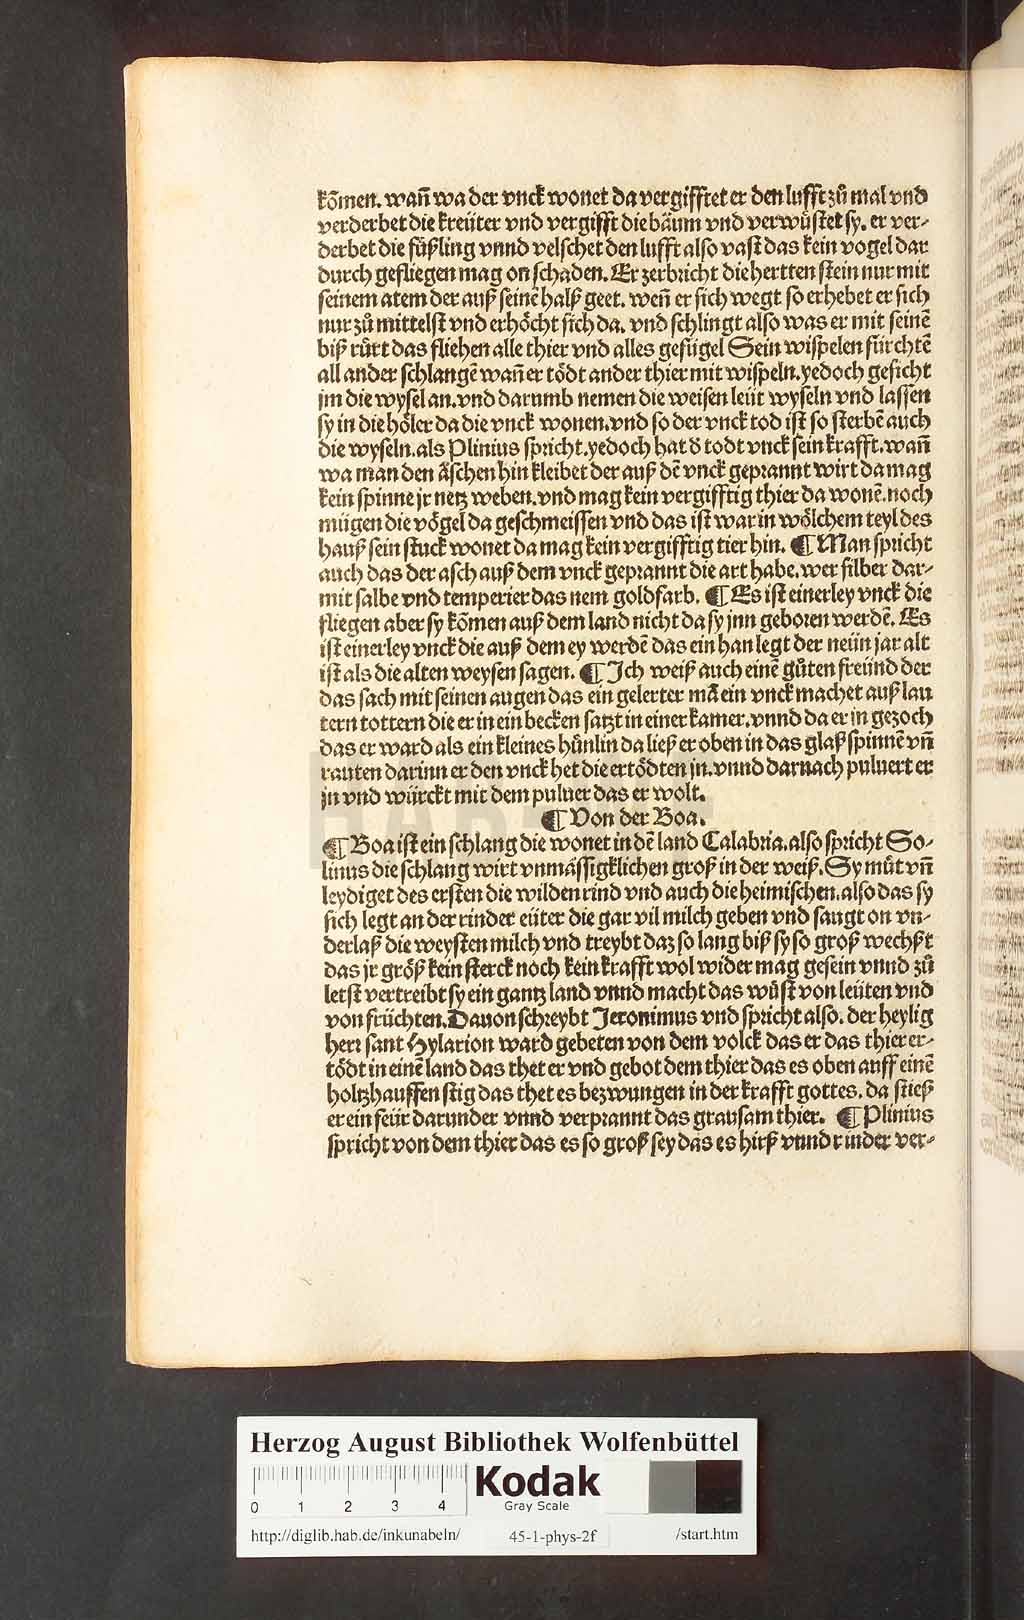 kom̃en. wañ wa der vnck wonet da vergifftet er den lufft zů mal vnd
verderbet die kreüter vnd vergifft die bäum vnd verwüstet sy. er ver-
derbet die süßling vnnd velschet den lufft also vast das kein vogel dar
durch gefliegen mag on schaden. Er zerbricht die hertten stein nur mit
seinem atem der auß seinē halß geet. weñ er sich wegt so erhebet er sich
nur zů mittelst vnd erhöcht sich da. vnd schlingt also was er mit seinē
biß rürt das fliehen alle thier vnd alles gefügel Sein wispelen fürchtē
all ander schlangē wañ er tödt ander thier mit wispeln. yedoch gesicht
jm die wysel an. vnd darumb nemen die weisen leüt wyseln vnd lassen
sy in die höler da die vnck wonen. vnd so der vnck tod ist so sterbē auch
die wyseln. als Plinius spricht. yedoch hat d̕ todt vnck sein krafft. wañ
wa man den äschen hin kleibet der auß dē vnck geprannt wirt da mag
kein spinne jr netz weben. vnd mag kein vergifftig thier da wonē. noch
mügen die vögel da geschmeissen vnd das ist war in wölchem teyl des
hauß sein stuck wonet da mag kein vergifftig tier hin. ¶ Man spricht
auch das der asch auß dem vnck geprannt die art habe. wer silber dar-
mit salbe vnd temperier das nem goldfarb. ¶ Es ist einerley vnck die
fliegen aber sy kom̃en auß dem land nicht da sy jnn geboren werdē. Es
ist einerley vnck die auß dem ey werdē das ein han legt der neün jar alt
ist als die alten weysen sagen. ¶ Ich weiß auch einē gůten freünd der
das sach mit seinen augen das ein gelerter mā ein vnck machet auß lau
tern tottern die er in ein becken satzt in einer kamer. vnnd da er in gezoch
das er ward als ein kleines hünlin da ließ er oben in das glaß spinnē vñ
rauten darinn er den vnck het die ertödten jn. vnnd darnach puluert er
jn vnd würckt mit dem puluer das er wolt.
¶ Von der Boa.
¶ Boa ist ein schlang die wonet in dē land Calabria. also spricht So-
linus die schlang wirt vnmässigklichen groß in der weiß. Sy müt vñ
leydiget des ersten die wilden rind vnd auch die heimischen. also das sy
sich legt an der rinder eüter die gar vil milch geben vnd saugt on vn-
derlaß die meysten milch vnd treybt daz so lang biß sy so groß wechßt
das jr größ kein sterck noch kein krafft wol wider mag gesein vnnd zů
letst vertreibt sy ein gantz land vnnd macht das wüst von leüten vnd
von früchten. Dauon schreybt Jeronimus vnd spricht also. der heylig
herr sant Hylarion ward gebeten von dem volck das er das thier er-
tödt in einē land das thet er vnd gebot dem thier das es oben auff einē
holtzhauffen stig das thet es bezwungen in der krafft gottes. da stieß
er ein feür darunder vnnd verprannt das grausam thier. ¶ Plinius
spricht von dem thier das es so groß sey das es hirß vnnd rinder ver-
Herzog August Bibliothek Wolfenbüttel
0 1 2 3 4
Kodak
Gray Scale
http://diglib.hab.de/inkunabeln/ 45-1-phys-2f /start.htm